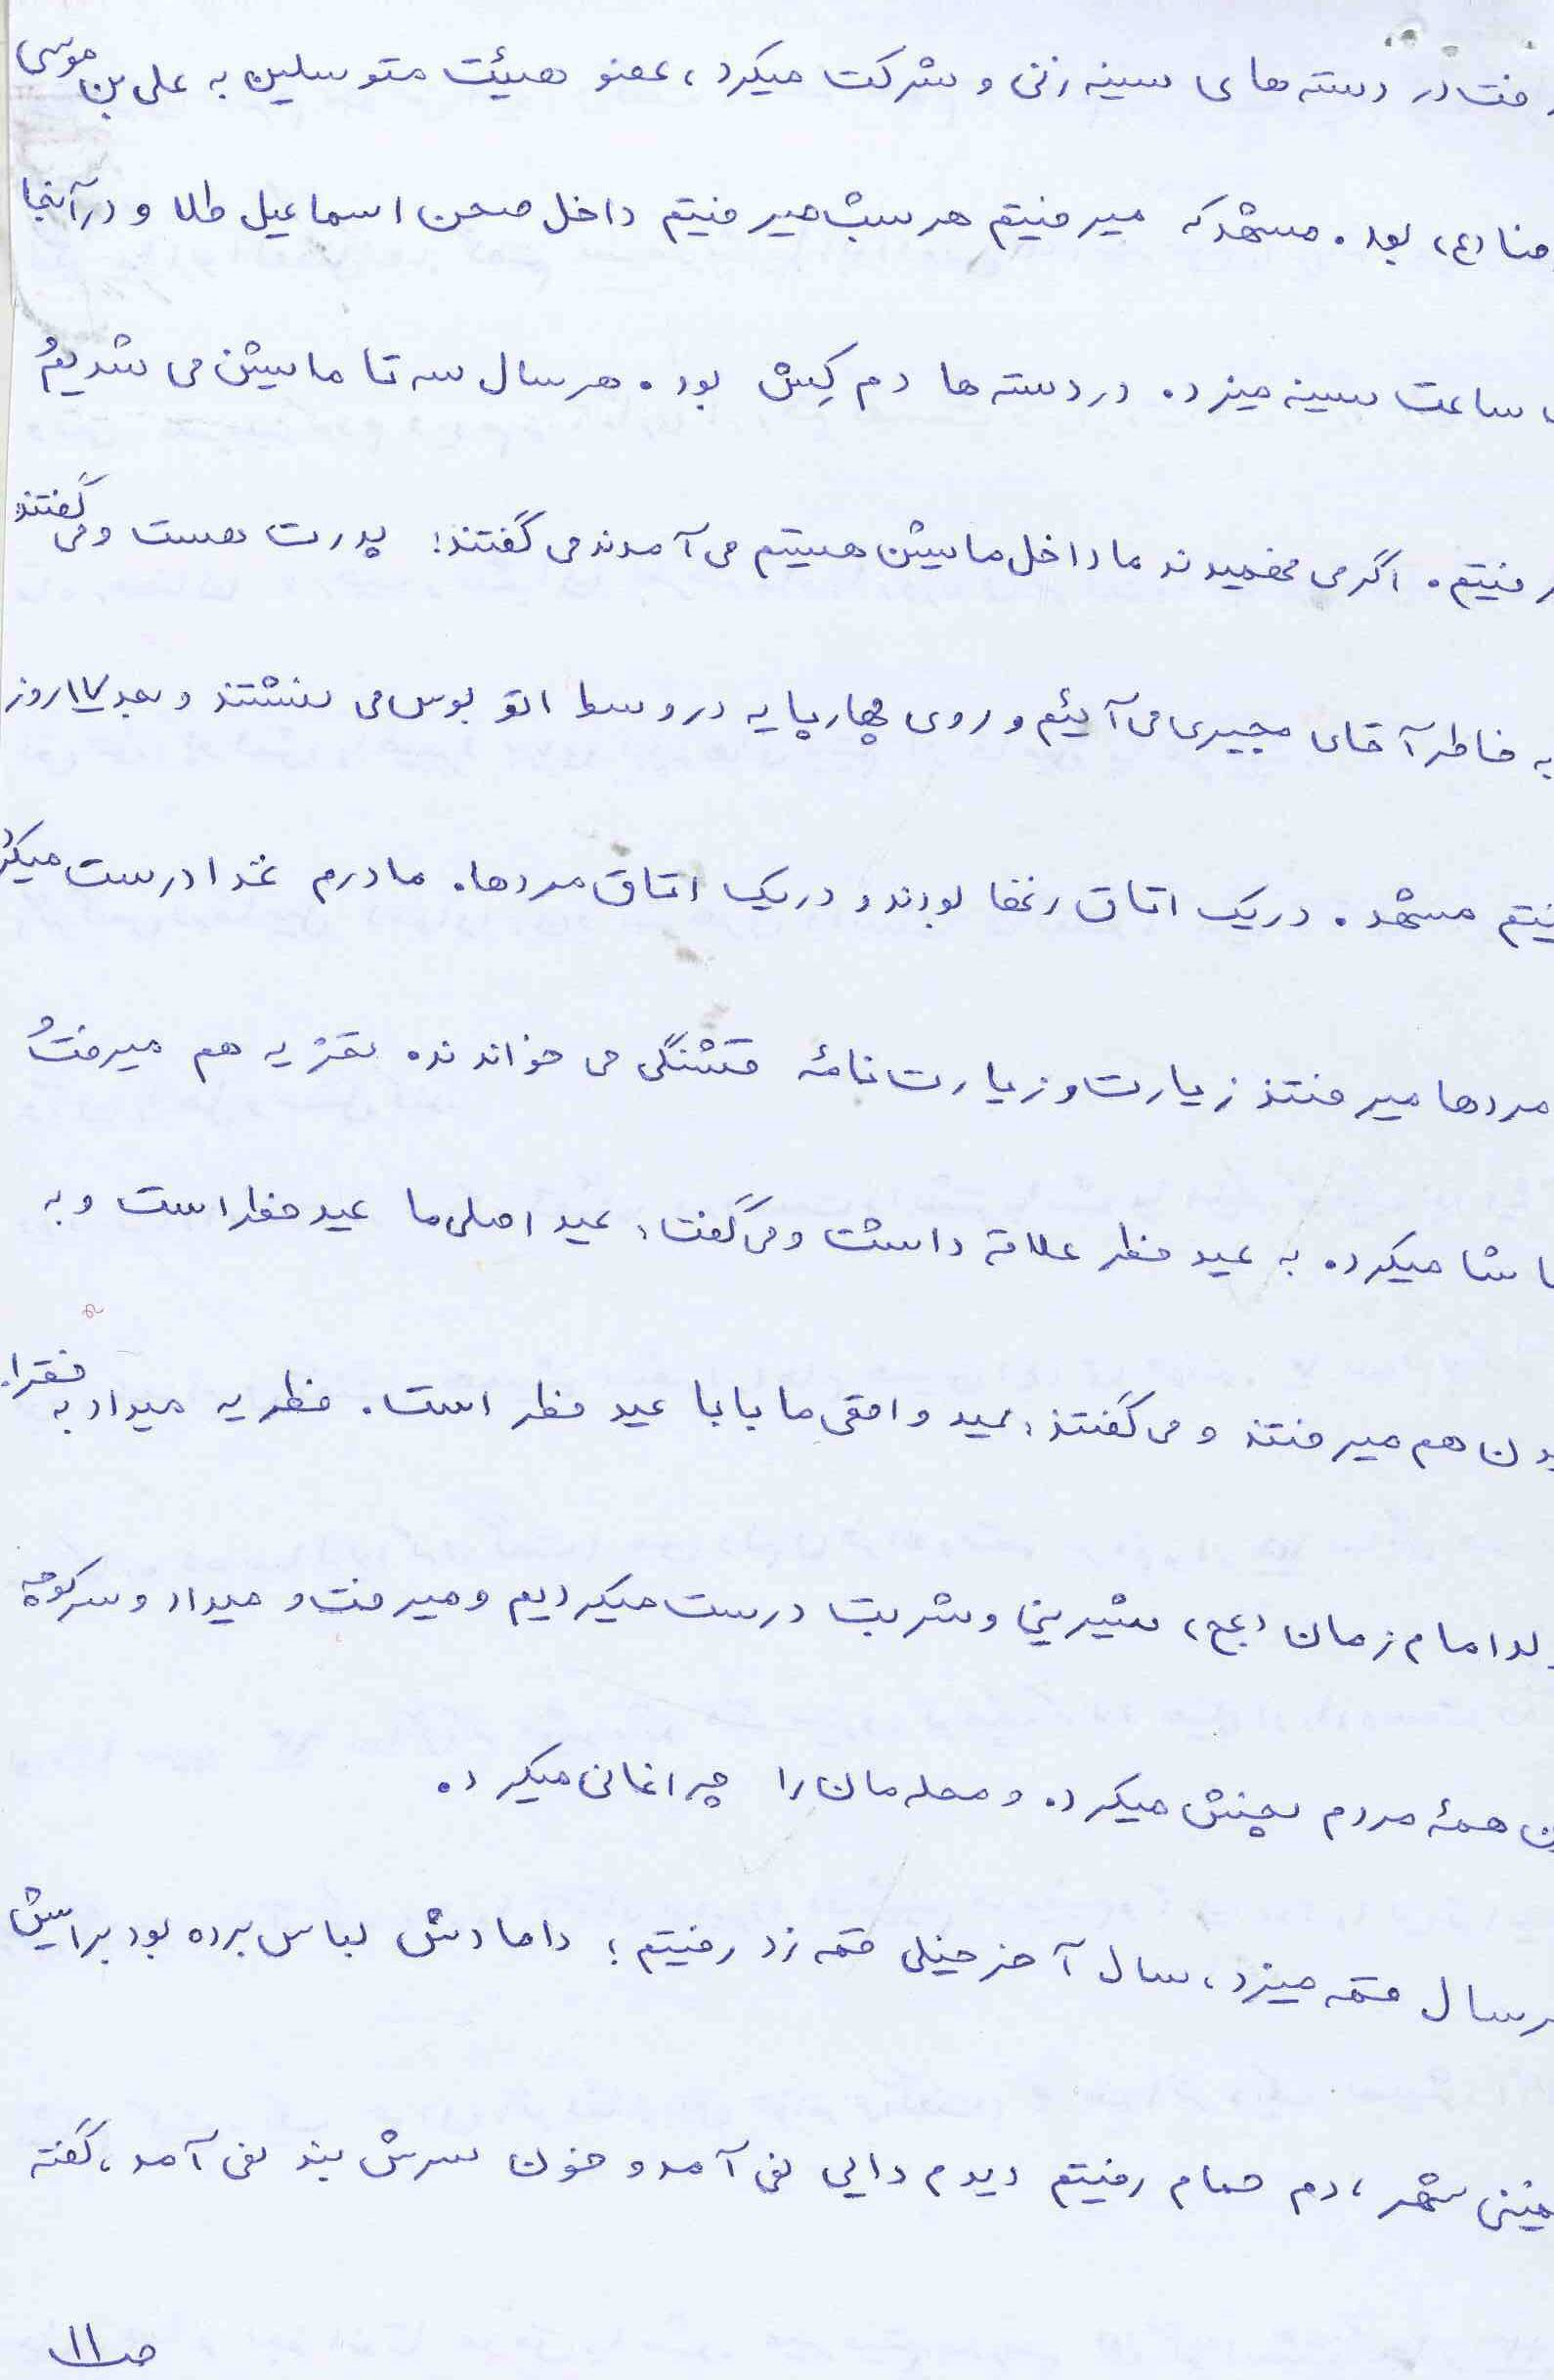 رفت در دسته های سینه زنی و شرکت میکرد، عضو هیئت متوسلین به علی بن موسی
رضا (ع) بود. مشهد که میرفتیم هر شب میرفتیم داخل صحن اسماعیل طلا و در آنجا
ساعت سینه میزد. در دسته ها دم کِش بود. هر سال سه تا ماشین می شدیم و
رفتیم. اگر می فهمیدند ما داخل ماشین هستیم می آمدند می گفتند: پدرت هست و می گفتند
به خاطر آقای مجیری می آئیم و روی چهارپایه در وسط اتوبوس می نشستند و بعد ۱۷ روز
مشهد. در یک اتاق زنها بودند و در یک اتاق مردها. مادرم غذا درست میکرد
مردها میرفتند زیارت و زیارت نامهٔ قشنگی می خواندند. تعزیه هم میرفت و
میکرد. به عید فطر علاقه داشت و می گفت: عید اصلی ما عید فطر است و به
هم میرفتند و می گفتند: عید واقعی ما بابا عید فطر است. فطریه میداد به فقرا.
امام زمان (عج)، شیرینی و شربت درست میکردیم و میرفت و میداد و سر کوچه
همهٔ مردم پخش میکرد. و محله مان را چراغانی میکرد.
سال قمه میزد، سال آخر خیلی قمه زد رفتیم؛ دامادش لباس برده بود برایش
شهر، دم حمام رفتیم دیدم دایی نمی آمد و خون سرش بند نمی آمد، گفته
ص ۱۱